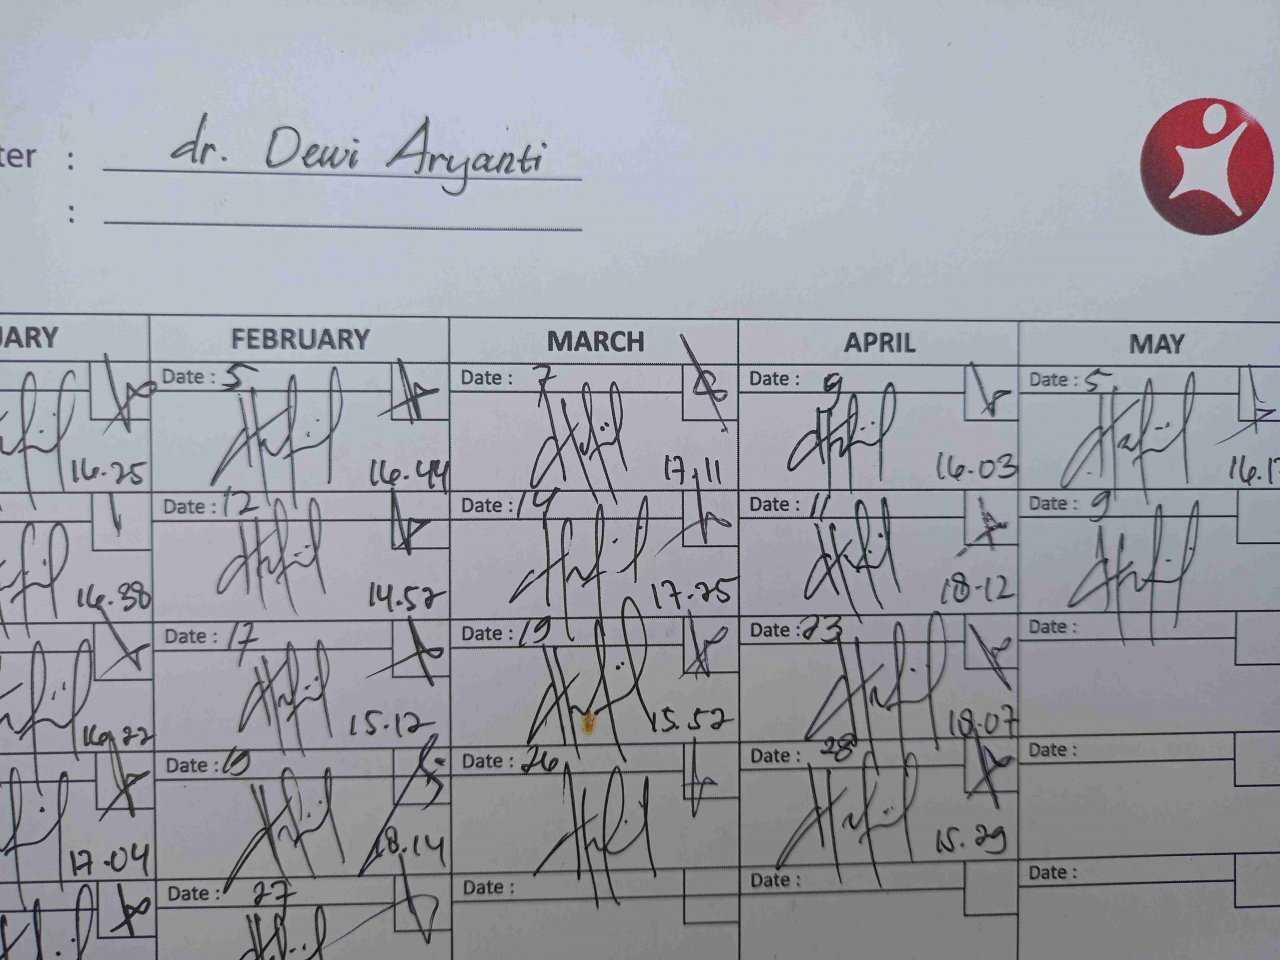 ter : dr. Dewi Aryanti
:
UARY FEBRUARY MARCH APRIL MAY
Date : 5 Date : 7 Date : 9 Date : 5
16.25 16.44 17.11 16.03 16.1
Date : 12 Date : 14 Date : 11 Date : 9
16.38 14.52 17.25 18.12
Date : 17 Date : 19 Date : 23 Date :
16.22 15.12 15.52 18.07
Date : 19 Date : 26 Date : 28 Date :
17.04 18.14 15.29
Date : 27 Date : Date : Date :